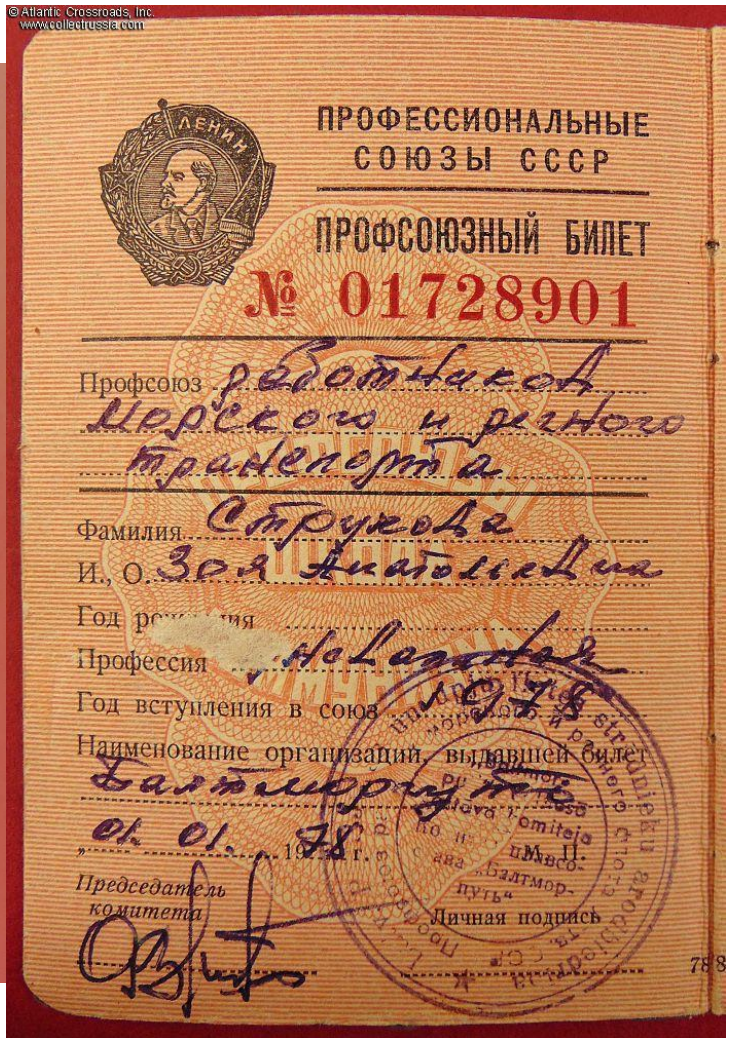 © Atlantic Crossroads, Inc.
www.collectrussia.com
ЛЕНИН
ПРОФЕССИОНАЛЬНЫЕ
СОЮЗЫ СССР
ПРОФСОЮЗНЫЙ БИЛЕТ
№ 01728901
Профсоюз работников
морского и речного
транспорта
Фамилия Струкова
И., О. Зоя Анатольевна
Год рождения
Профессия
Год вступления в союз 1978
Наименование организации, выдавшей билет
Балтморпуть
„01. 01. 1978 г. М. П.
Председатель
комитета
Личная подпись
морского и речного флота
"Балтмор-
путь"
788